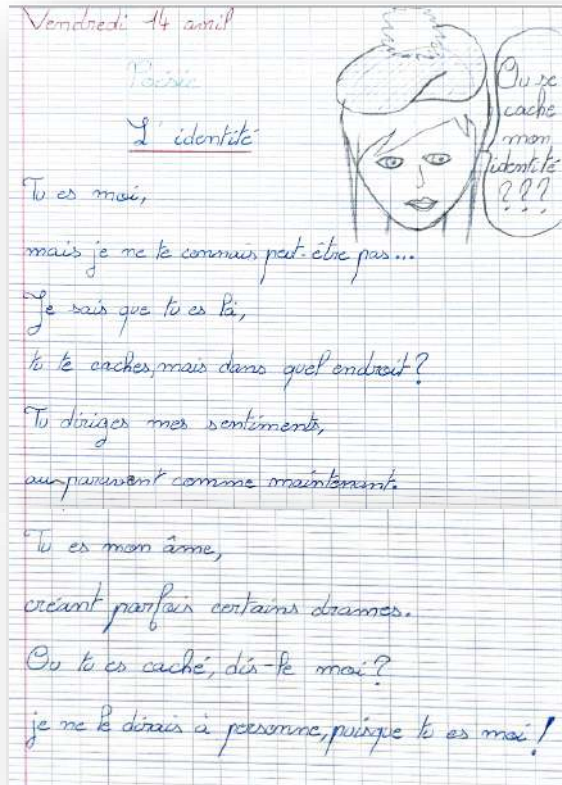 Vendredi 14 avril
Poésie
L'identité
Ou se
cache
mon
identité
???
Tu es moi,
mais je ne te connais peut-être pas...
Je sais que tu es là,
tu te caches, mais dans quel endroit?
Tu diriges mes sentiments,
au paravent comme maintenant.
Tu es mon âme,
créant parfois certains drames.
Ou tu es caché, dis-le moi?
je ne le dirais à personne, puisque tu es moi!